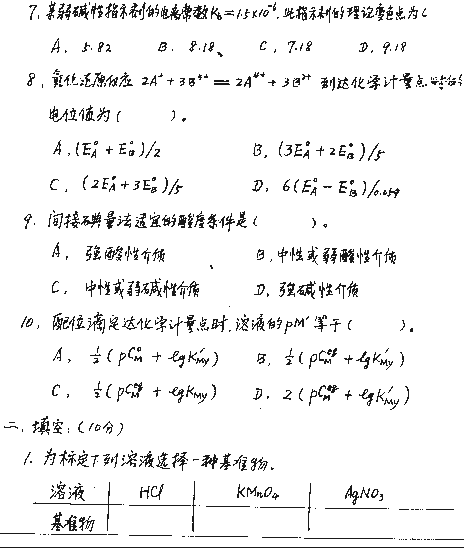 7、某弱碱性指示剂的电离常数K_b=1.5×10⁻⁶,此指示剂的理论变色点为(
A、5.82 B、8.18、 C、7.18 D、9.18
8、氧化还原反应 2A⁺ + 3B⁴⁺ = 2A⁴⁺ + 3B²⁺ 到达化学计量点时的
电位值为( )。
A、(E°_A + E°_B)/2 B、(3E°_A + 2E°_B)/5
C、(2E°_A + 3E°_B)/5 D、6(E°_A - E°_B)/0.059
9、间接碘量法适宜的酸度条件是( )。
A、强酸性介质 B、中性或弱酸性介质
C、中性或弱碱性介质 D、强碱性介质
10、配位滴定达化学计量点时,溶液的pM′等于( )。
A、½(pC°_M + lgK′_MY) B、½(pC^eq_M + lgK′_MY)
C、½(pC^eq_M + lgK_MY) D、2(pC^eq_M + lgK′_MY)
二、填空:(10分)
1、为标定下列溶液选择一种基准物。
溶液 HCl KMnO₄ AgNO₃
基准物